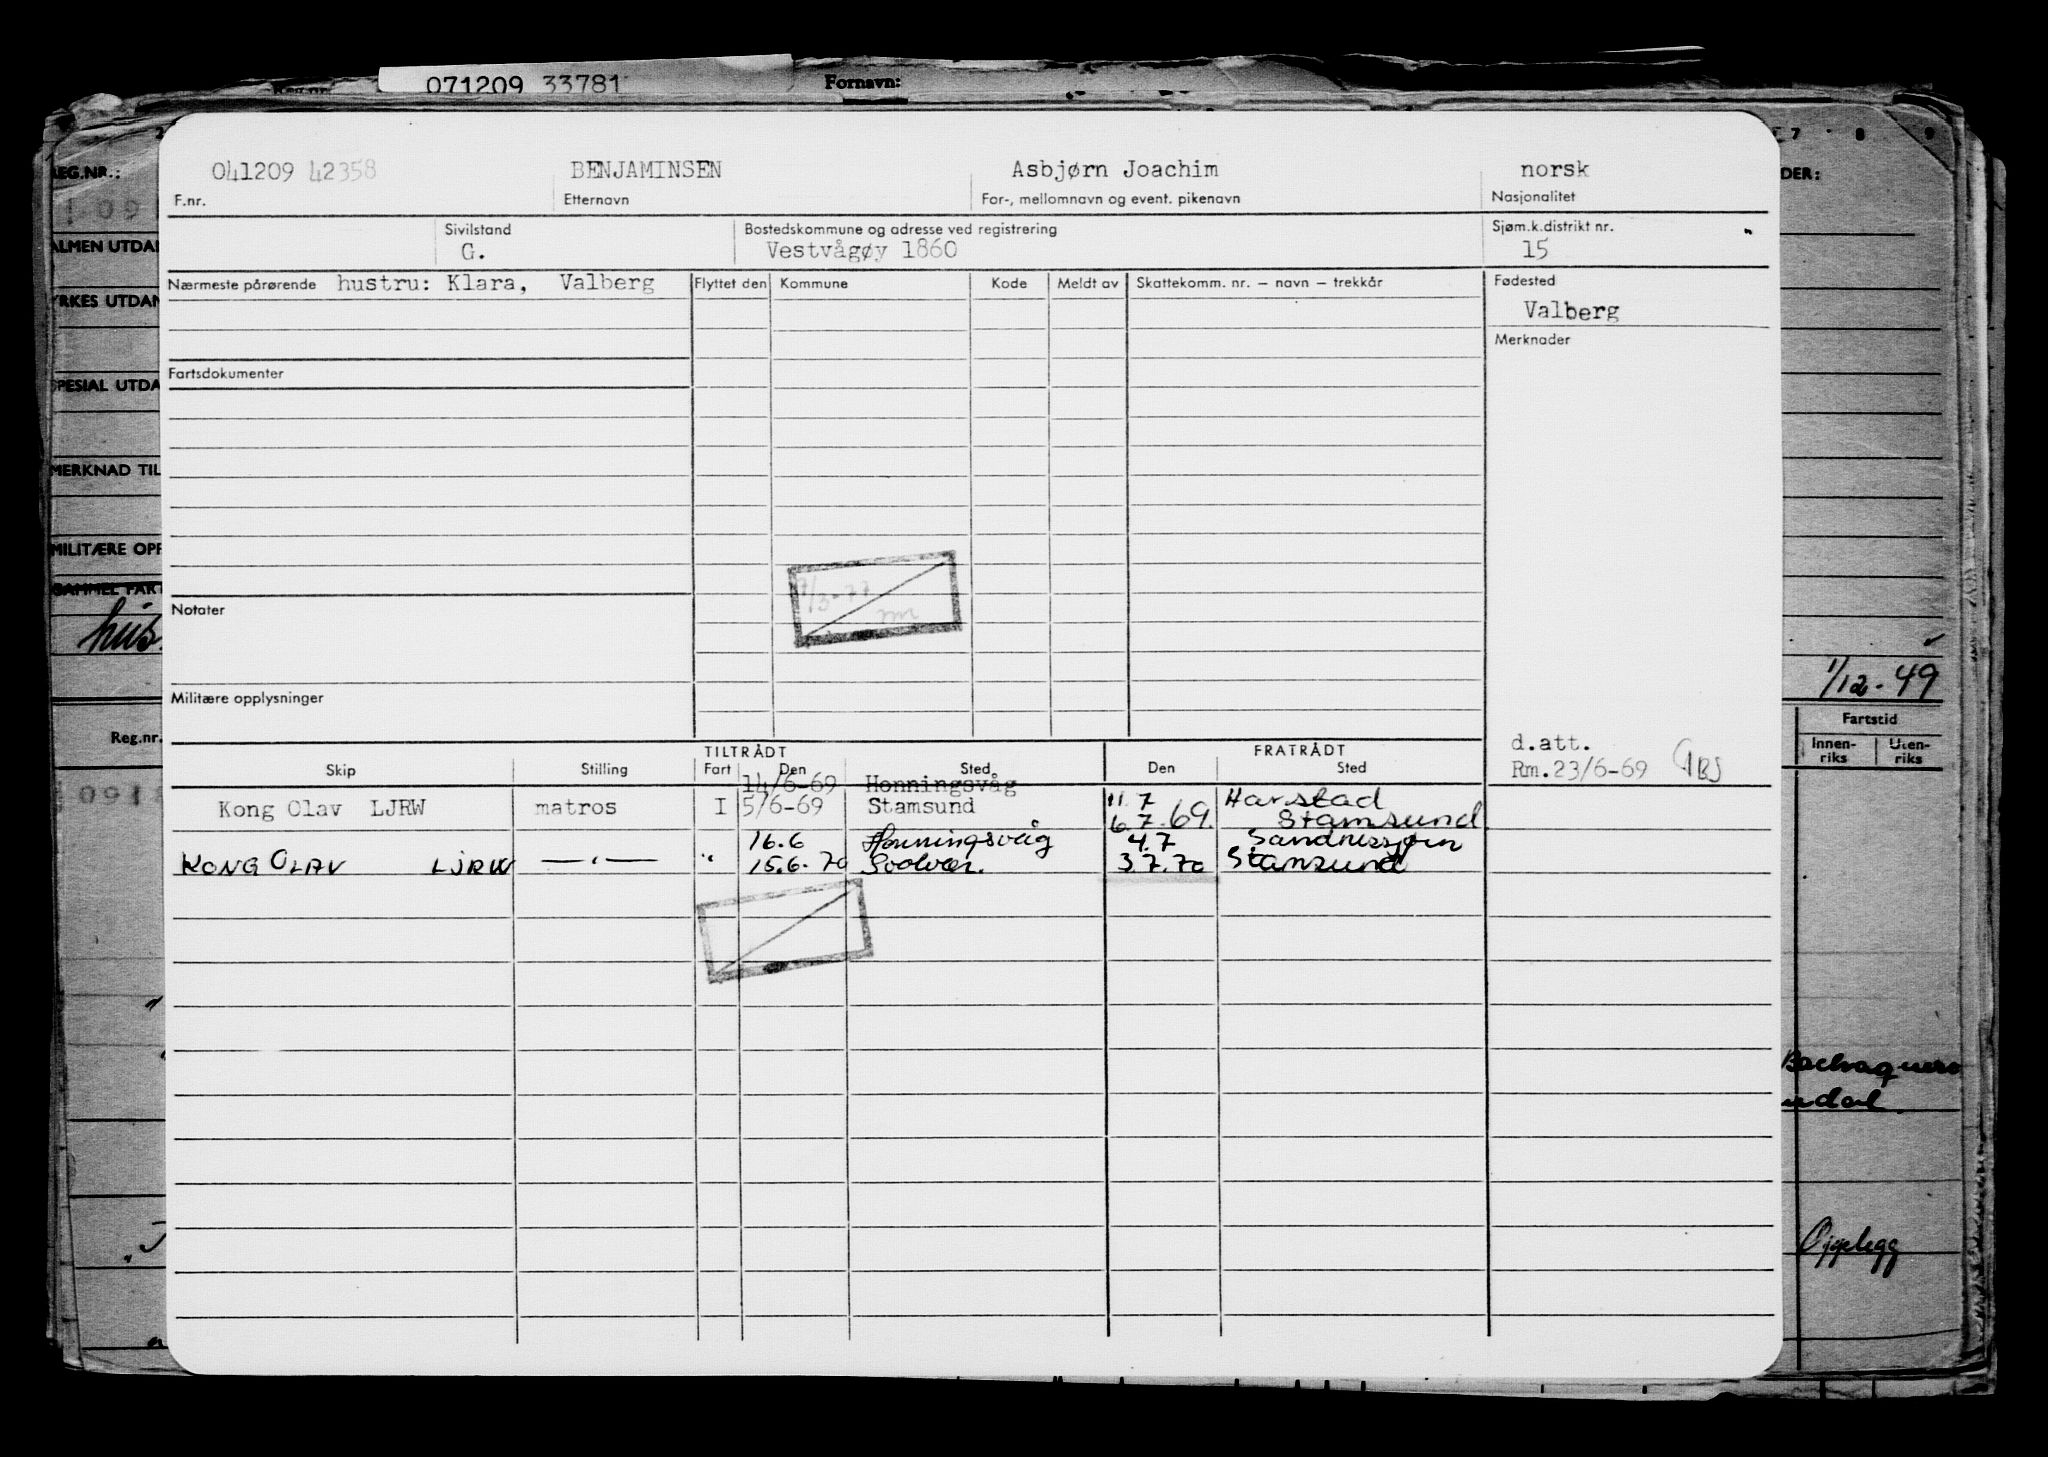 071209 33781 Fornavn:
7 8 9
041209 42358 BENJAMINSEN Asbjørn Joachim norsk
F.nr. Etternavn For-, mellomnavn og event. pikenavn Nasjonalitet
Sivilstand Bostedskommune og adresse ved registrering Sjøm.k.distrikt nr.
G. Vestvågøy 1860 15
Nærmeste pårørende hustru: Klara, Valberg Flyttet den Kommune Kode Meldt av Skattekomm. nr. – navn – trekkår Fødested
Valberg
Merknader
Fartsdokumenter
7/3-77
Notater
Militære opplysninger
TILTRÅDT FRATRÅDT d.att.
Skip Stilling Fart Den Sted Den Sted Rm.23/6-69
14/6-69 Honningsvåg 11.7 Harstad
Kong Olav LJRW matros I 5/6-69 Stamsund 6.7.69. Stamsund
16.6 Honningsvåg 4.7 Sandnessjøen
KONG OLAV LJRW —"— " 15.6.70 Svolvær. 3.7.70 Stamsund
REG.NR.:
ALMEN UTDA
YRKES UTDAN
SPESIAL UTDA
MERKNAD TIL
MILITÆRE OPP
GAMMEL FART
hus
Reg.nr.
091
DER:
1/12-49
Fartstid
Innen- Uten-
riks riks
Opplegg